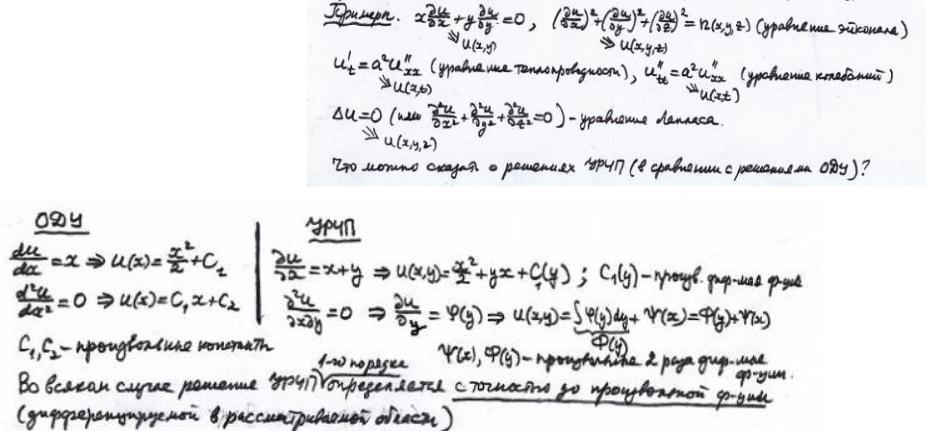 Примеры. x ∂u/∂x + y ∂u/∂y = 0, (∂u/∂x)² + (∂u/∂y)² + (∂u/∂z)² = n(x,y,z) (уравнение эйконала)
⇒ u(x,y) ⇒ u(x,y,z)
u't = a²u''xx (уравнение теплопроводности), u''tt = a²u''xx (уравнение колебаний)
⇒ u(x,t) ⇒ u(x,t)
Δu = 0 (или ∂²u/∂x² + ∂²u/∂y² + ∂²u/∂z² = 0) – уравнение Лапласа.
⇒ u(x,y,z)
Что можно сказать о решениях УРЧП (в сравнении с решениями ОДУ)?
ОДУ
du/dx = x ⇒ u(x) = x²/2 + C₁
d²u/dx² = 0 ⇒ u(x) = C₁x + C₂
C₁, C₂ – произвольные константы
УРЧП
∂u/∂x = x + y ⇒ u(x,y) = x²/2 + yx + C₁(y) ; C₁(y) – произв. диф-мая ф-ция
∂²u/∂x∂y = 0 ⇒ ∂u/∂y = φ(y) ⇒ u(x,y) = ∫φ(y)dy + Ψ(x) = Φ(y) + Ψ(x)
Φ(y)
Ψ(x), Φ(y) – произвольные 2 раза диф-мые
ф-ции.
1-го порядка
Во всяком случае решение УРЧП определяется с точностью до произвольной ф-ции
(дифференцируемой в рассматриваемой области)